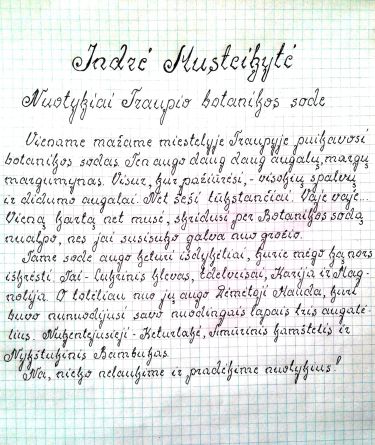 Indrė Musteikytė
Nuotykiai Traupio botanikos sode
Viename mažame miestelyje Traupyje puikavosi
botanikos sodas. Ten augo daug daug augalų, margų
margumynas. Visur, kur pažiūrėsi, - visokių spalvų
ir didumo augalai. Net šeši tūkstančiai. Vaje vaje...
Vieną kartą net musė, skridusi per Botanikos sodą
nualpo, nes jai susisuko galva nuo grožio.
Tame sode augo keturi išdykėliai, kurie mėgo ką nors
iškrėsti. Tai - Cukrinis klevas, Edelveisai, Karija ir Mag-
nolija. O totėliau nuo jų augo Dėmėtoji Mauda, kuri
buvo nunuodijusi savo nuodingais lapais tris augalė-
lius. Nukentėjusieji - Keturlakė, Amūrinis kamštenis ir
Nykštukinis Bambukas.
Na, nieko nelaukime ir pradėkime nuotykius!